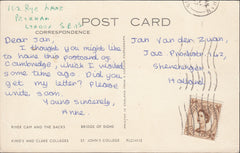 112 Rye
Peckham
London S.E.15
POST CARD
CORRESPONDENCE
Dear Jan,
I thought you might like
to have this postcard of
Cambridge, which I visited
some time ago. Did you
get my letter? Please
write soon.
Yours Sincerely,
Anne.
Jan Van den
Jac
Holland
RIVER CAM AND THE BACKS
BRIDGE OF SIGHS
KING'S AND CLARE COLLEGES
ST JOHN'S COLLEGE